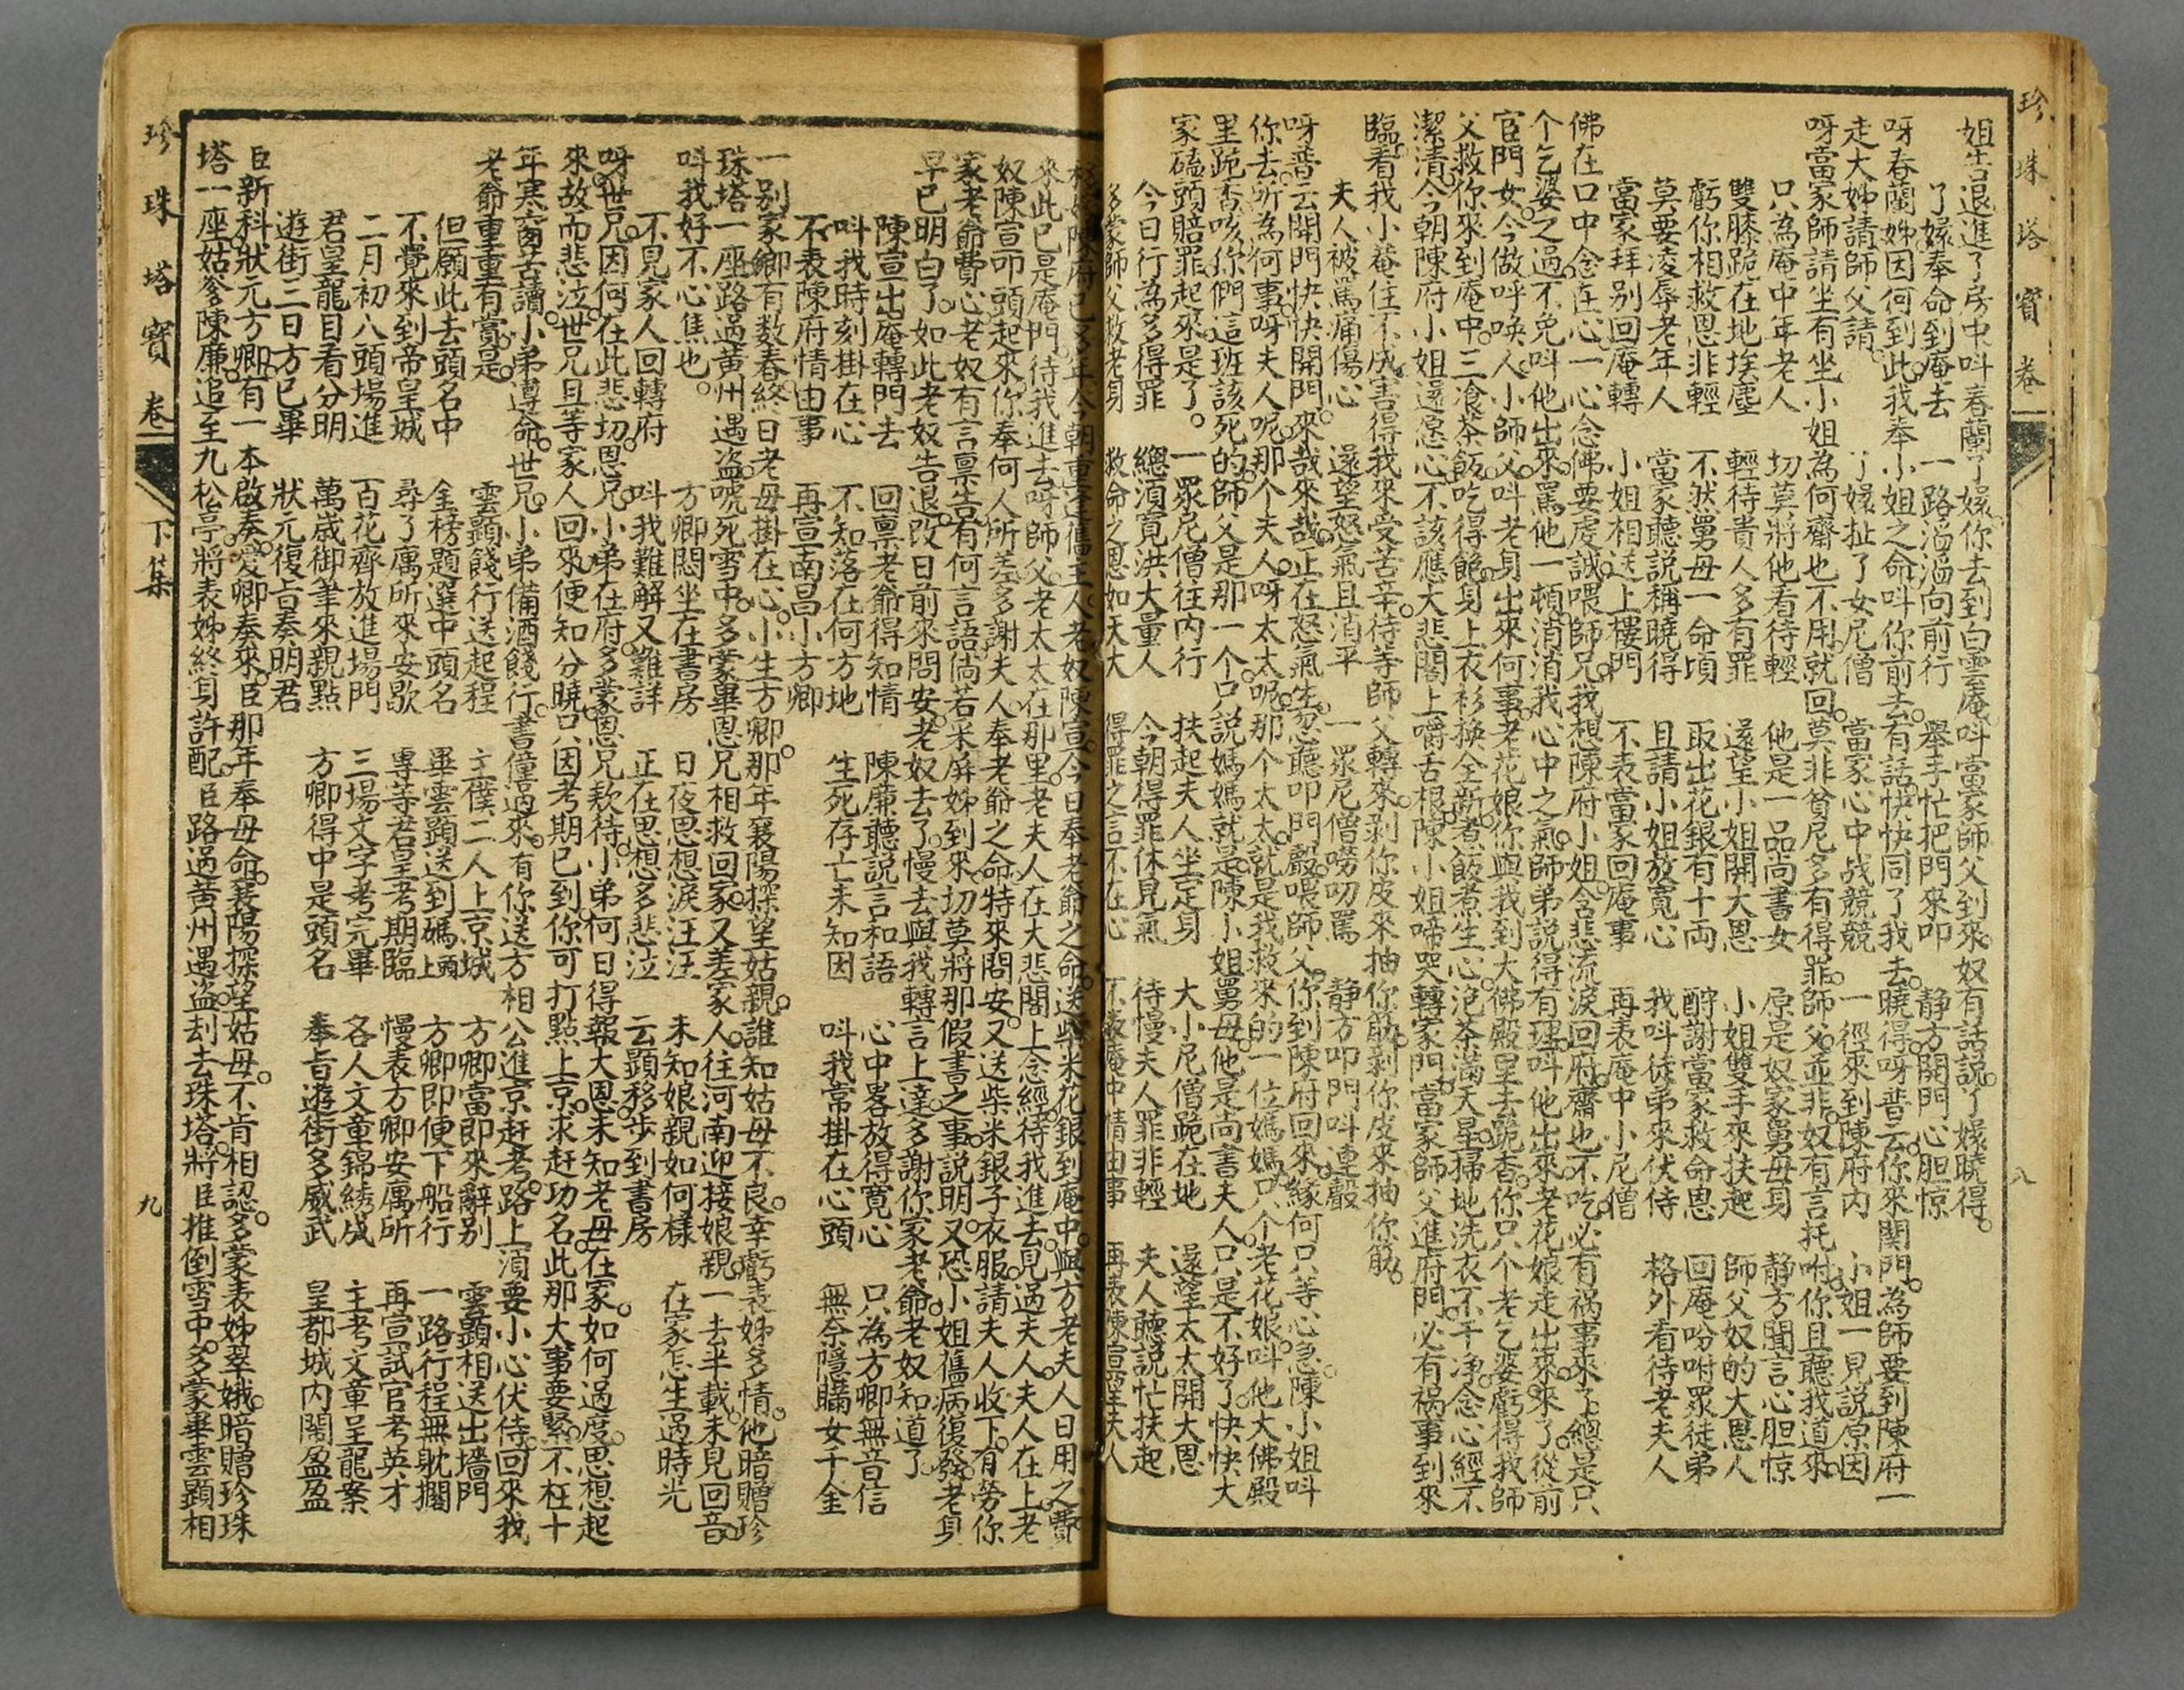 珍珠塔寶卷 下集 八
姐告退進了房中呌春蘭了嬛你去到白雲庵呌當家師父到來奴有話說了嬛曉得
了嬛奉命到庵去 一路滔滔向前行 舉手忙把門來叩 静方開門心胆惊
呀春蘭姊因何到此我奉小姐之命呌你前去有話快快同了我去曉得呀普云你來関門為師要到陳府一
走大姊請師父請 了嬛扯了女尼僧 當家心中战競競 一徑來到陳府內 小姐一見説原因
呀當家師請坐有坐小姐為何齋也不用就回莫非貧尼多有得罪師父並非奴有言托咐你且聽我道來
只為庵中年老人 切莫將他看待輕 他是一品尚書女 原是奴家舅母身 静方聞言心胆惊
雙膝跪在地埃塵 輕待貴人多有罪 還望小姐開大恩 小姐雙手來扶起 師父奴的大恩人
虧你相救恩非輕 不然舅母一命頃 取出花銀有十両 酧謝當家救命恩 回庵吩咐眾徒弟
莫要凌辱老年人 當家聽説稱曉得 且請小姐放寬心 我呌徒弟來伏侍 格外看待老夫人
當家拜别回庵轉 小姐相送上樓門 不表當家回庵事 再表庵中小尼僧
佛在口中念在心一心念佛要虔誠喂師兄我想陳府小姐含悲流淚回府齋也不吃必有祸事來了總是只
个乞婆之過不免呌他出來罵他一頓消消我心中之氣師弟説得有理呌他出來老花娘走出來來了從前
宦門女今做呼唤人小師父呌老身出來何事老花娘你與我到大佛殿里去跪香你只个老乞婆虧得我師
父救你來到庵中三飡茶飯吃得飽身上衣衫换全新煮飯煮生心泡茶滿天星掃地洗衣不干净念心經不
潔清今朝陳府小姐還愿心不該應大悲閣上嚼舌根陳小姐啼哭轉家門當家師父進府門必有祸事到來
臨看我小菴住不成害得我來受苦辛待等師父轉來剥你皮來抽你筋剥你皮來抽你筋
夫人被罵痛傷心 還望怒氣且消平 一眾尼僧嘮叨罵 静方叩門呌連聲
呀普云開門快快開門來哉來哉正在怒氣生忽聽叩門聲喂師父你到陳府回來緣何只等心急陳小姐呌
你去所為何事呀夫人呢那个夫人呀太太呢那个太太就是我救來的一位媽媽只个老花娘呌他大佛殿
里跪香咳你們這班該死的師父是那一个只説媽媽就是陳小姐舅母他是尚書夫人只是不好了快快大
家磕頭賠罪起來是了 一眾尼僧往內行 扶起夫人坐定身 大小尼僧跪在地 還望太太開大恩
今日行為多得罪 總須寬洪大量人 今朝得罪休見氣 待慢夫人罪非輕 夫人聽説忙扶起
多蒙師父救老身 救命之恩如天大 得罪之言不在心 不表庵中情由事 再表陳宣望夫人
陳府已多年今朝重逢舊主人老奴陳宣今日奉老爺之命送柴米花銀到庵中與方老夫人日用之費
來此已是庵門待我進去呀師父老太太在那里老夫人在大悲閣上念經待我進去見過夫人夫人在上老
奴陳宣叩頭起來你奉何人所差多謝夫人奉老爺之命特來問安又送柴米銀子衣服請夫人收下有勞你
家老爺費心老奴有言禀告有何言語倘若采屏姊到來切莫將那假書之事説明又恐小姐舊病復發老身
早已明白了如此老奴告退改日前來問安老奴去了慢去與我轉言上達多謝你家老爺老奴知道了
陳宣出庵轉門去 回禀老爺得知情 陳廉聽説言和語 心中畧放得寬心 只為方卿無音信
呌我時刻掛在心 不知落在何方地 生死存亡未知因 呌我常掛在心頭 無奈隱瞞女千金
不表陳府情由事 再宣南昌小方卿
一别家鄉有数春終日老母掛在心小生方卿那年襄陽探望姑親誰知姑母不良幸虧表姊多情他暗贈珍
珠塔一座路過黄州遇盗唬死雪中多蒙畢恩兄相救回家又差家人往河南迎接娘親一去半載未見回音
呌我好不心焦也 方卿悶坐在書房 日夜思想淚汪汪 未知娘親如何樣 在家怎生過時光
不見家人回轉府 呌我難解又難詳 正在思想多悲泣 云顕移步到書房
呀世兄因何在此悲切恩兄小弟在府多蒙恩兄欵待小弟何日得報大恩未知老母在家如何過度思想起
來故而悲泣世兄且等家人回來便知分曉只因考期已到你可打點上京求赶功名此那大事要緊不枉十
年寒窗苦讀小弟遵命世兄小弟備酒餞行書僮過來有你送方相公進京赶考路上須要小心伏侍回來我
老爺重重有賞是 雲顕餞行送起程 主僕二人上京城 方卿當即來辭别 雲顕相送出墻門
但願此去頭名中 金榜題選中頭名 畢雲顕送到碼頭上 方卿即便下船行 一路行程無躭擱
不覺來到帝皇城 尋了寓所來安歇 專等君皇考期臨 慢表方卿安寓所 再宣試官考英才
二月初八頭場進 百花齊放進場門 三場文字考完畢 各人文章錦綉成 主考文章呈龍案
君皇龍目看分明 萬歲御筆來親點 方卿得中是頭名 奉旨遊街多威武 皇都城内閙盈盈
遊街三日方已畢 狀元復旨奏明君
臣新科狀元方卿有一本啟奏愛卿奏來臣那年奉母命襄陽探望姑母不肯相認多蒙表姊翠娥暗贈珍珠
塔一座姑爹陳廉追至九松亭將表姊終身許配臣路過黄州遇盗刦去珠塔將臣推倒雪中多蒙畢雲顕相
珍珠塔寶卷 下集 九